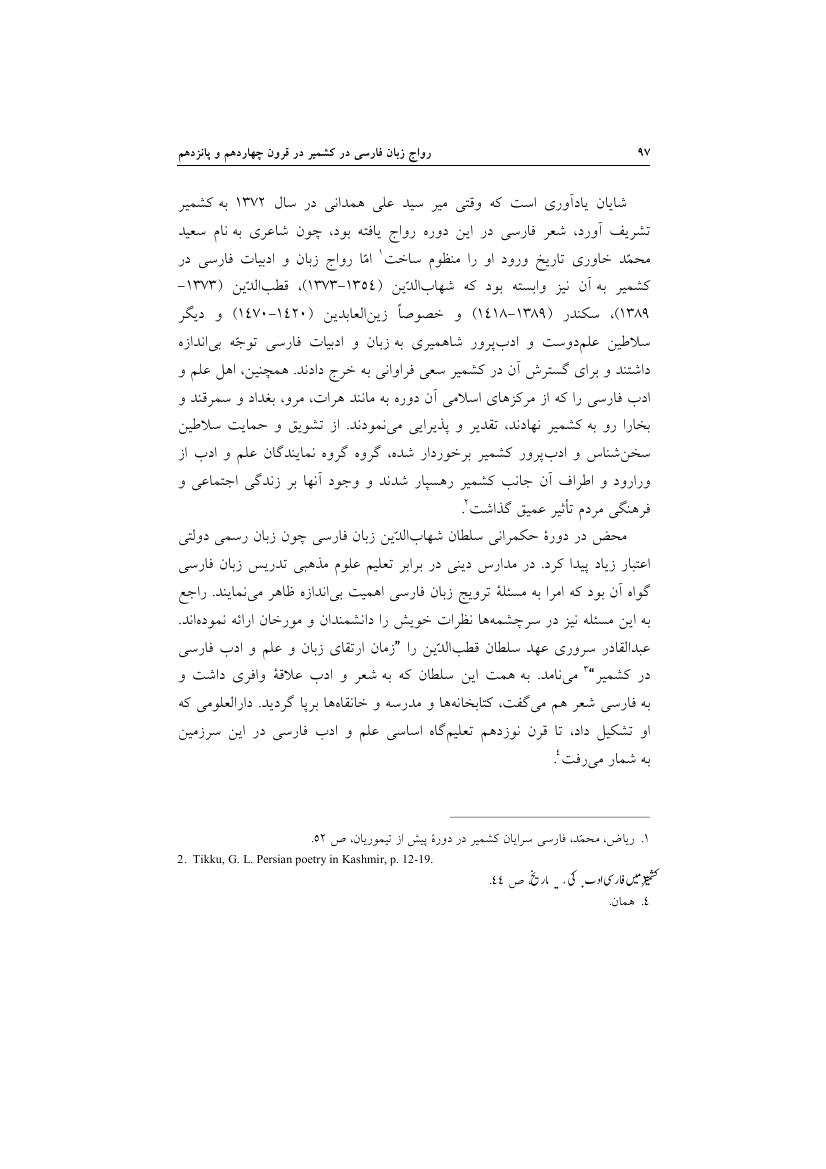 ۹۷ رواج زبان فارسی در کشمیر در قرون چهاردهم و پانزدهم
شایان یادآوری است که وقتی میر سید علی همدانی در سال ۱۳۷۲ به کشمیر
تشریف آورد، شعر فارسی در این دوره رواج یافته بود، چون شاعری به نام سعید
محمّد خاوری تاریخ ورود او را منظوم ساخت۱ امّا رواج زبان و ادبیات فارسی در
کشمیر به آن نیز وابسته بود که شهاب‌الدّین (۱۳۵۴-۱۳۷۳)، قطب‌الدّین (۱۳۷۳-
۱۳۸۹)، سکندر (۱۳۸۹-۱۴۱۸) و خصوصاً زین‌العابدین (۱۴۲۰-۱۴۷۰) و دیگر
سلاطین علم‌دوست و ادب‌پرور شاهمیری به زبان و ادبیات فارسی توجّه بی‌اندازه
داشتند و برای گسترش آن در کشمیر سعی فراوانی به خرج دادند. همچنین، اهل علم و
ادب فارسی را که از مرکزهای اسلامی آن دوره به مانند هرات، مرو، بغداد و سمرقند و
بخارا رو به کشمیر نهادند، تقدیر و پذیرایی می‌نمودند. از تشویق و حمایت سلاطین
سخن‌شناس و ادب‌پرور کشمیر برخوردار شده، گروه گروه نمایندگان علم و ادب از
ورارود و اطراف آن جانب کشمیر رهسپار شدند و وجود آنها بر زندگی اجتماعی و
فرهنگی مردم تأثیر عمیق گذاشت۲.
محض در دورۀ حکمرانی سلطان شهاب‌الدّین زبان فارسی چون زبان رسمی دولتی
اعتبار زیاد پیدا کرد. در مدارس دینی در برابر تعلیم علوم مذهبی تدریس زبان فارسی
گواه آن بود که امرا به مسئلۀ ترویج زبان فارسی اهمیت بی‌اندازه ظاهر می‌نمایند. راجع
به این مسئله نیز در سرچشمه‌ها نظرات خویش را دانشمندان و مورخان ارائه نموده‌اند.
عبدالقادر سروری عهد سلطان قطب‌الدّین را ”زمان ارتقای زبان و علم و ادب فارسی
در کشمیر“۳ می‌نامد. به همت این سلطان که به شعر و ادب علاقۀ وافری داشت و
به فارسی شعر هم می‌گفت، کتابخانه‌ها و مدرسه و خانقاه‌ها برپا گردید. دارالعلومی که
او تشکیل داد، تا قرن نوزدهم تعلیم‌گاه اساسی علم و ادب فارسی در این سرزمین
به شمار می‌رفت۴.
۱. ریاض، محمّد، فارسی سرایان کشمیر در دورۀ پیش از تیموریان، ص ۵۲.
2. Tikku, G. L. Persian poetry in Kashmir, p. 12-19.
کشمیر میں فارسی ادب کی تاریخ، ص ۴۴.
۴. همان.